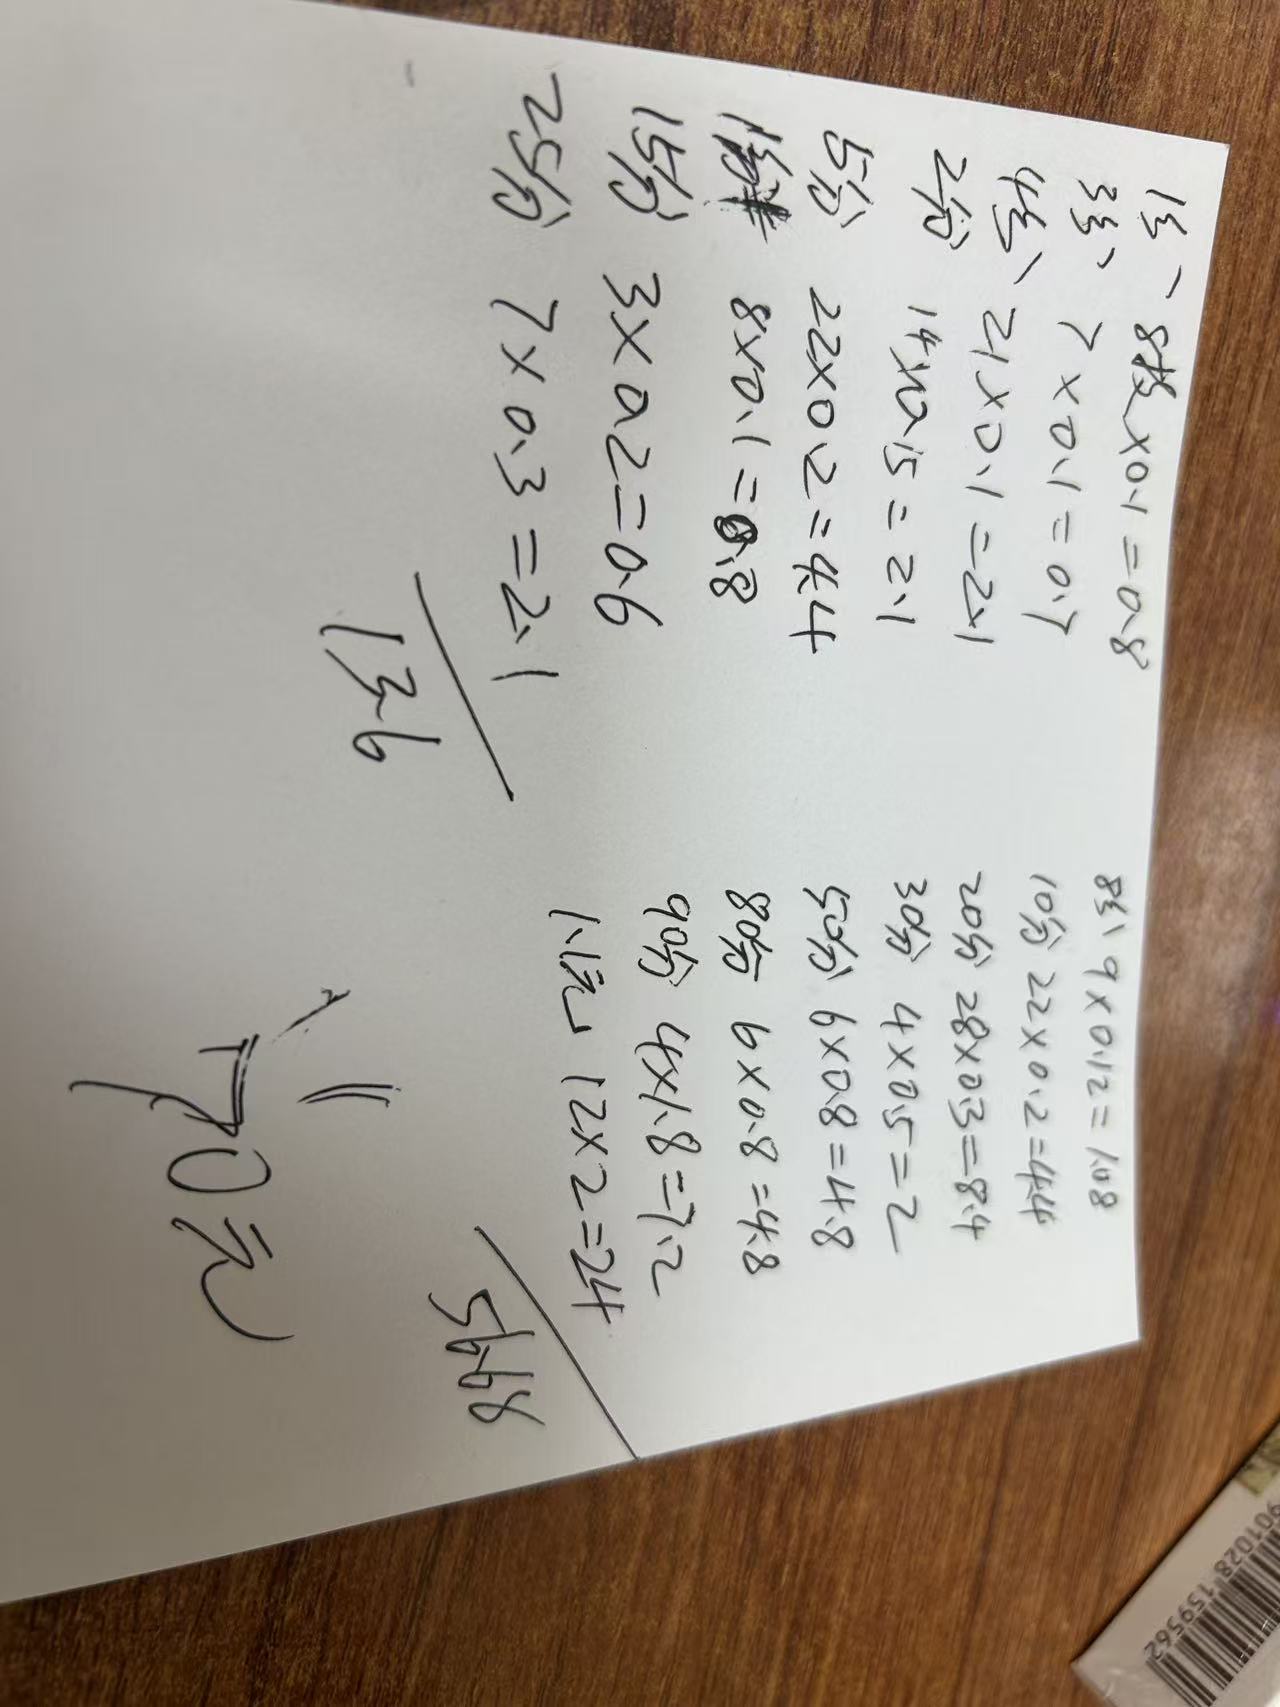 1分、8枚×0.1=0.8
3分、7×0.1=0.7
4分、21×0.1=2.1
2角 14×0.15=2.1
5角 22×0.2=4.4
8×0.1=0.8
15角 3×0.2=0.6
25角 7×0.3=2.1
13.6
8分、9×0.12=1.08
10分 22×0.2=4.4
20分 28×0.3=8.4
30分 4×0.5=2
50分 6×0.8=4.8
80分 6×0.8=4.8
90分 4×1.8=7.2
1.1元 12×2=24
59.68
70元
9 901028 159562